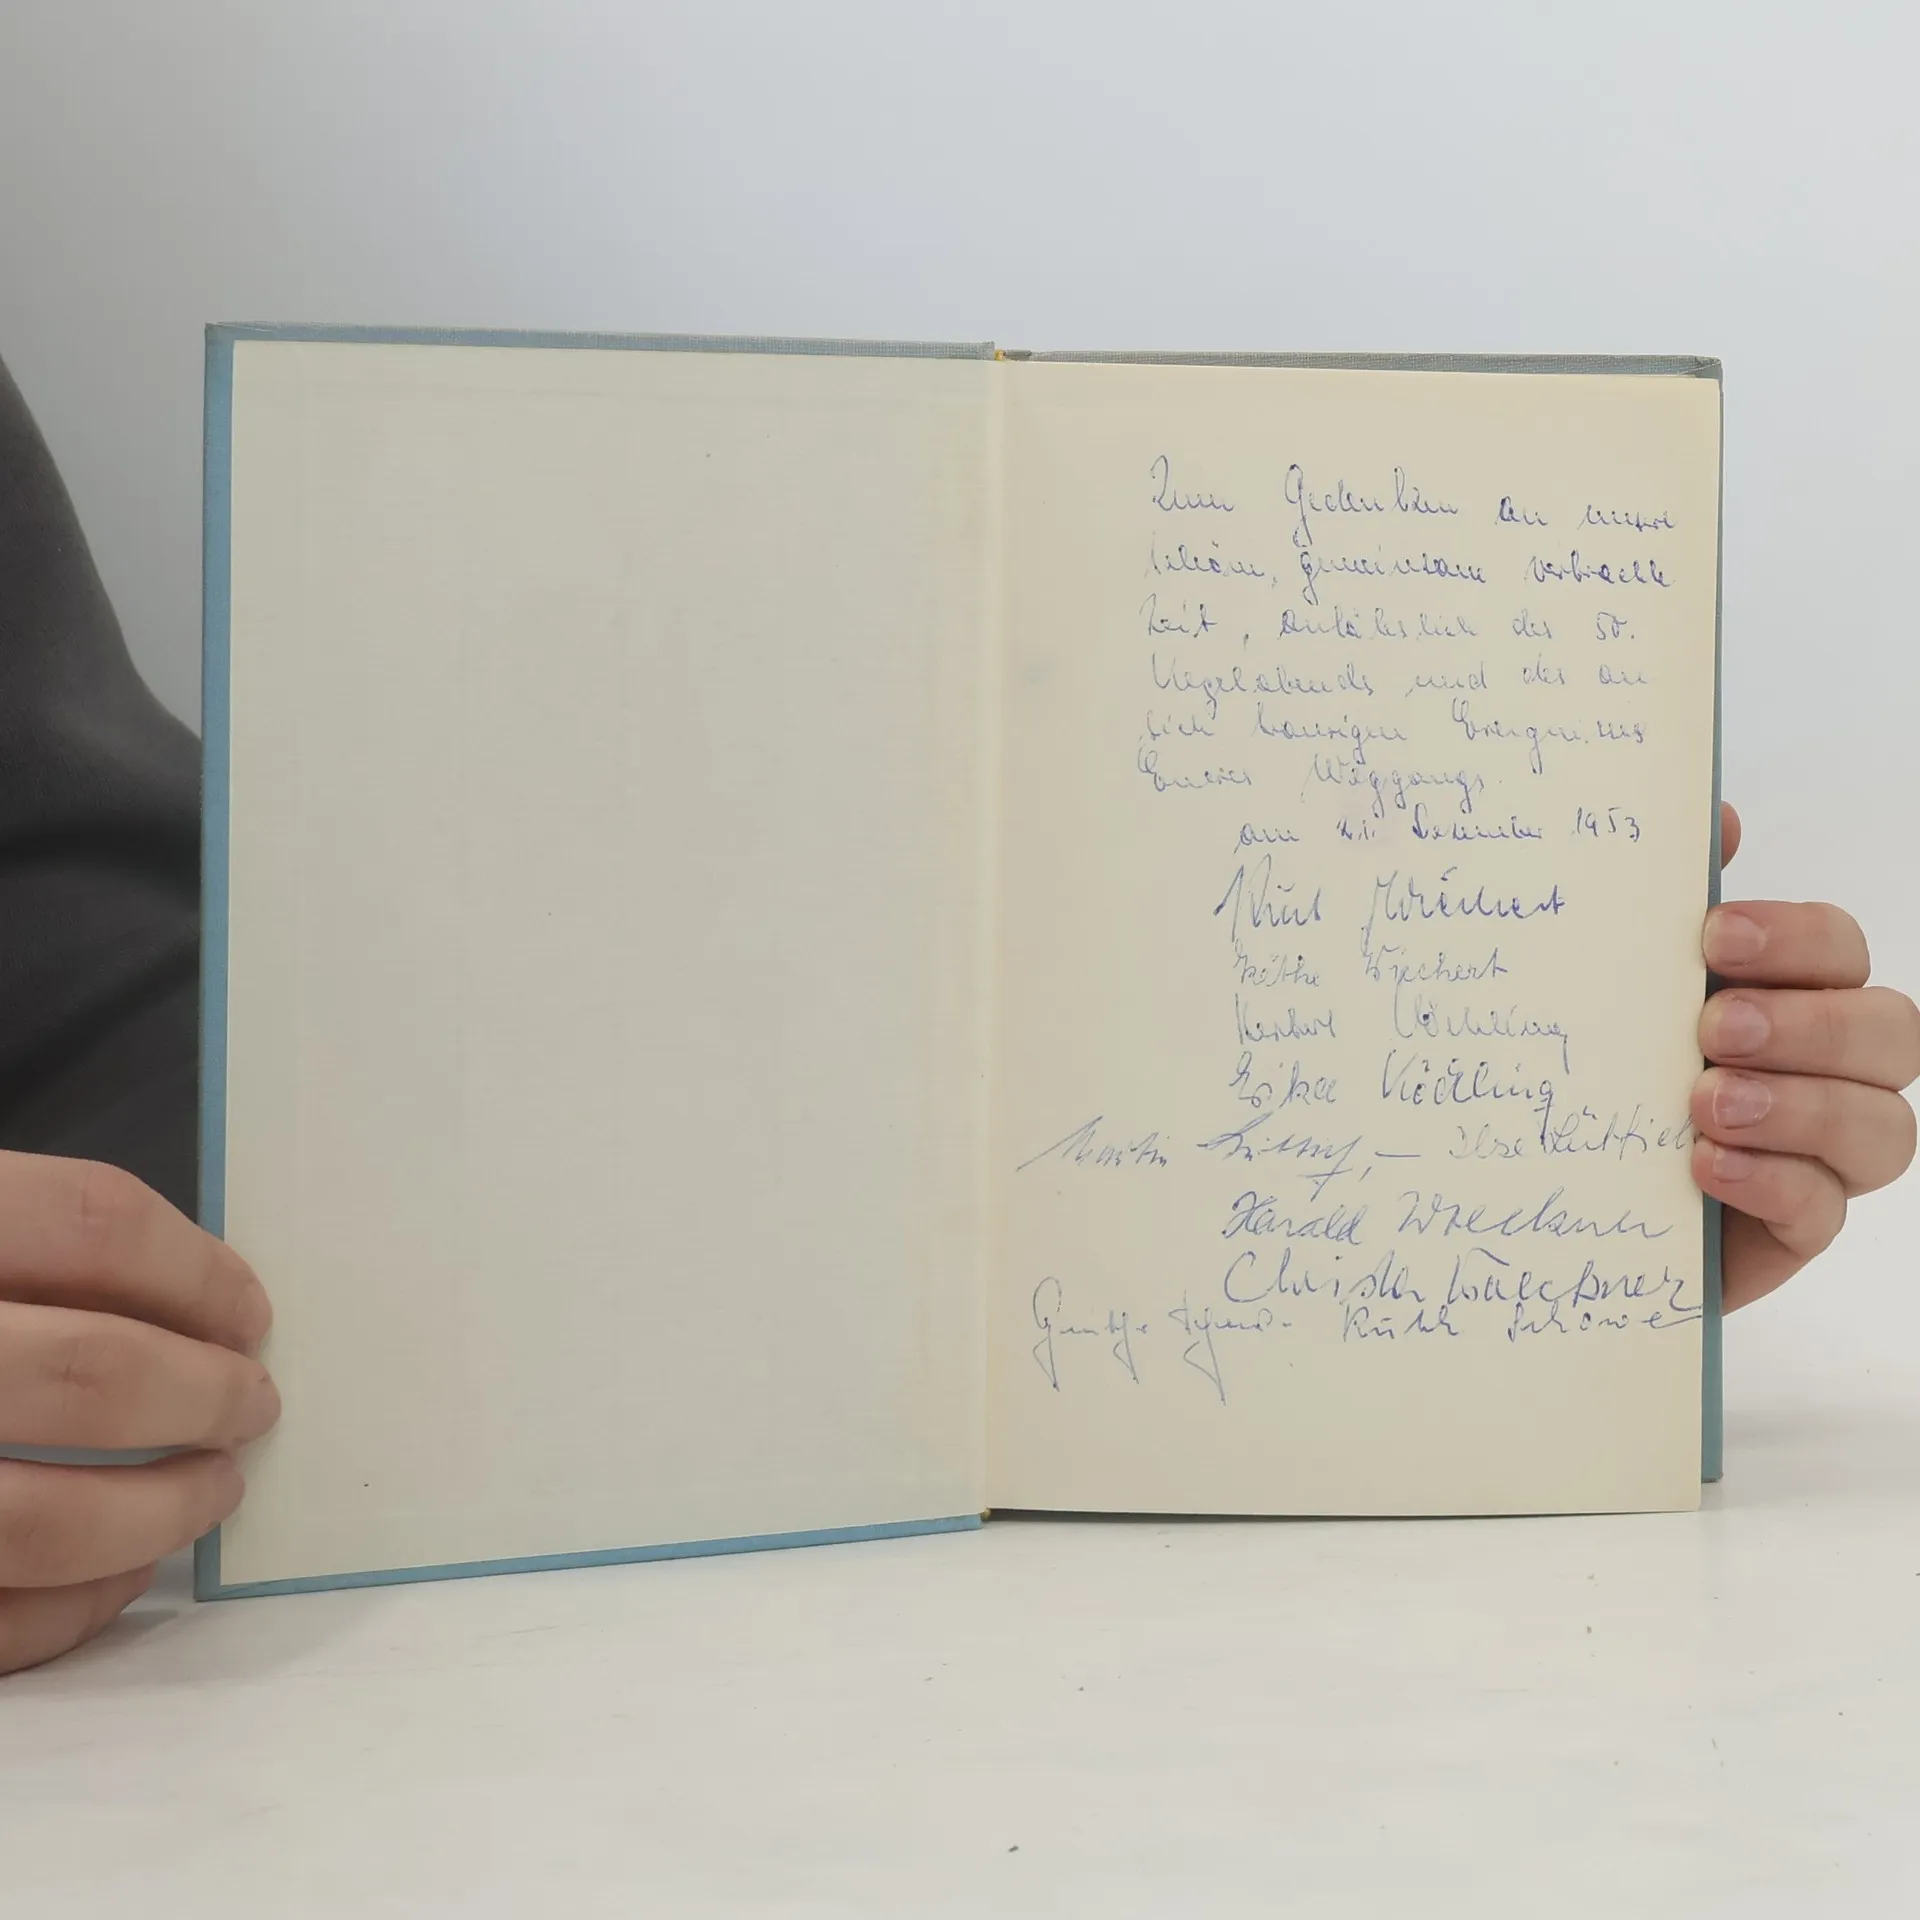 Zum Gedenken an unsere
schöne, gemeinsam verbrachte
Zeit, anläßlich des 50.
Kegelabends und des an
sich traurigen Ereignisses
Eueres Weggangs.
am Dezember 1953
Kurt Wiechert
Käthe Wiechert
Herbert
Erika
Martin — Ilse
Harald Waeckner
Christa Waeckner
Ruth